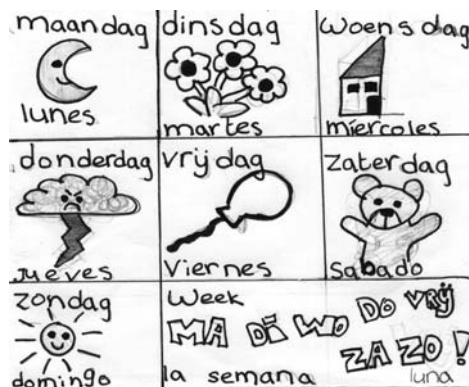 maandag
lunes
dinsdag
martes
woensdag
miercoles
donderdag
jueves
vrijdag
viernes
zaterdag
sabado
zondag
domingo
Week
MA DI WO DO VRIJ
ZA ZO!
la semana
luna